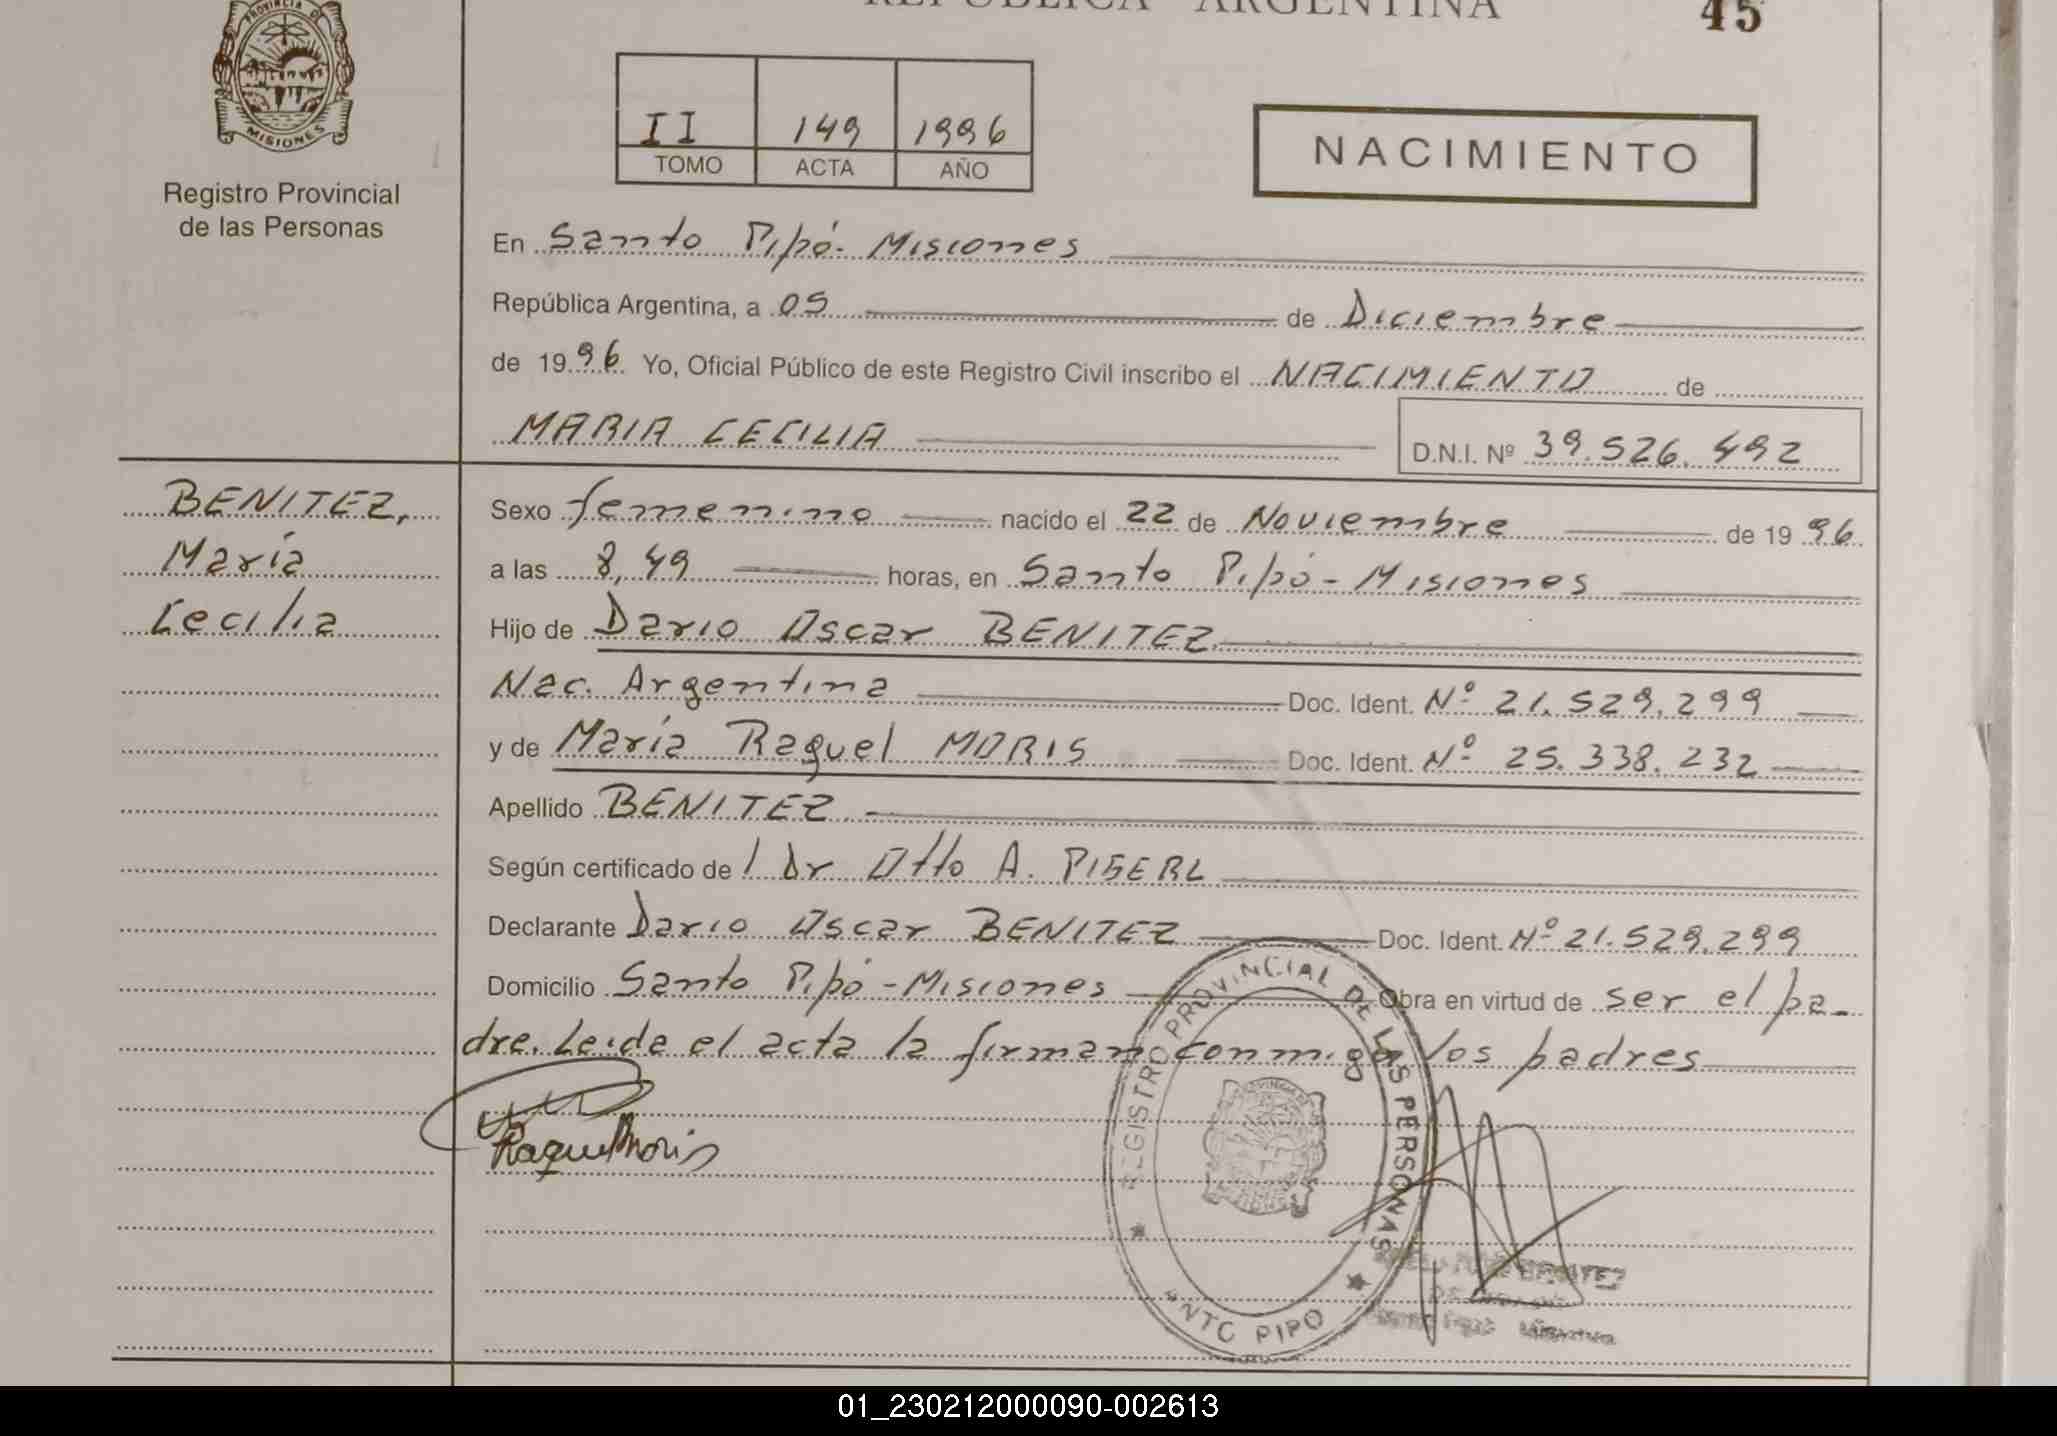 REPUBLICA ARGENTINA
45
PROVINCIA D
MISIONES
Registro Provincial
de las Personas
II 149 1996
TOMO ACTA AÑO
NACIMIENTO
En Santo Pipó - Misiones
República Argentina, a 05 de Diciembre
de 1996. Yo, Oficial Público de este Registro Civil inscribo el NACIMIENTO de
MARIA CECILIA D.N.I. Nº 39.526.492
BENITEZ,
María
Cecilia
Sexo femenino nacido el 22 de Noviembre de 1996.
a las 8,49 horas, en Santo Pipó - Misiones
Hijo de Dario Oscar BENITEZ
Nac. Argentina Doc. Ident. Nº 21.529.299
y de María Raquel MORIS Doc. Ident. Nº 25.338.232
Apellido BENITEZ
Según certificado de l Dr Otto A.
Declarante Dario Oscar BENITEZ Doc. Ident. Nº 21.529.299
Domicilio Santo Pipó - Misiones Obra en virtud de ser el pa-
dre. Leida el acta la firman conmigo los padres
Raquel Moris
REGISTRO PROVINCIAL DE LAS PERSONAS
ANTO PIPO
BENITEZ
01_230212000090-002613